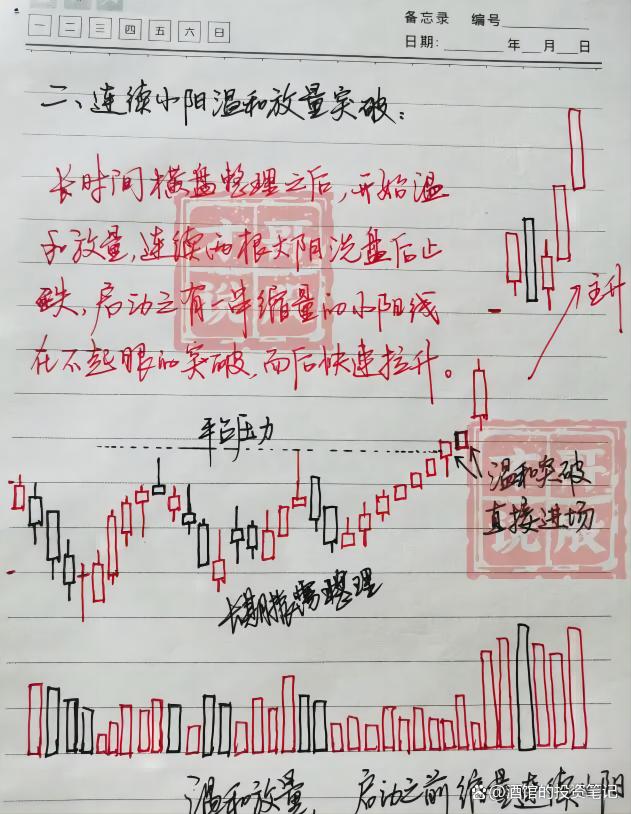 备忘录 编号
一 二 三 四 五 六 日
日期: 年 月 日
二、连续小阳温和放量突破：
长时间横盘整理之后，开始温
和放量，连续两根大阳洗盘后止
跌，启动之有一串缩量的小阳线
在不起眼的突破，而后快速拉升。
主升
平台压力
温和突破
直接进场
长期震荡整理
温和放量，启动之前缩量连续小阳
@酒馆的投资笔记